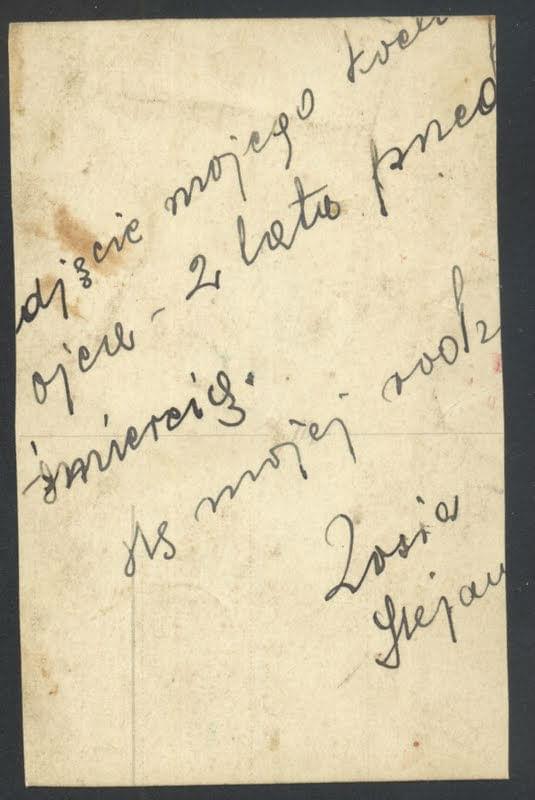 djęcie mojego koch
ojca - 2 lata przed
śmiercią.
mojej rodz
Zosia
Stefan